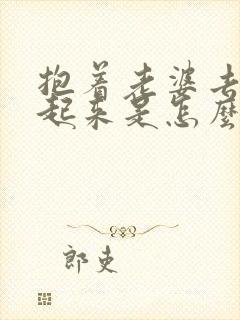 抱着老婆去
起来是怎麼
郎吏